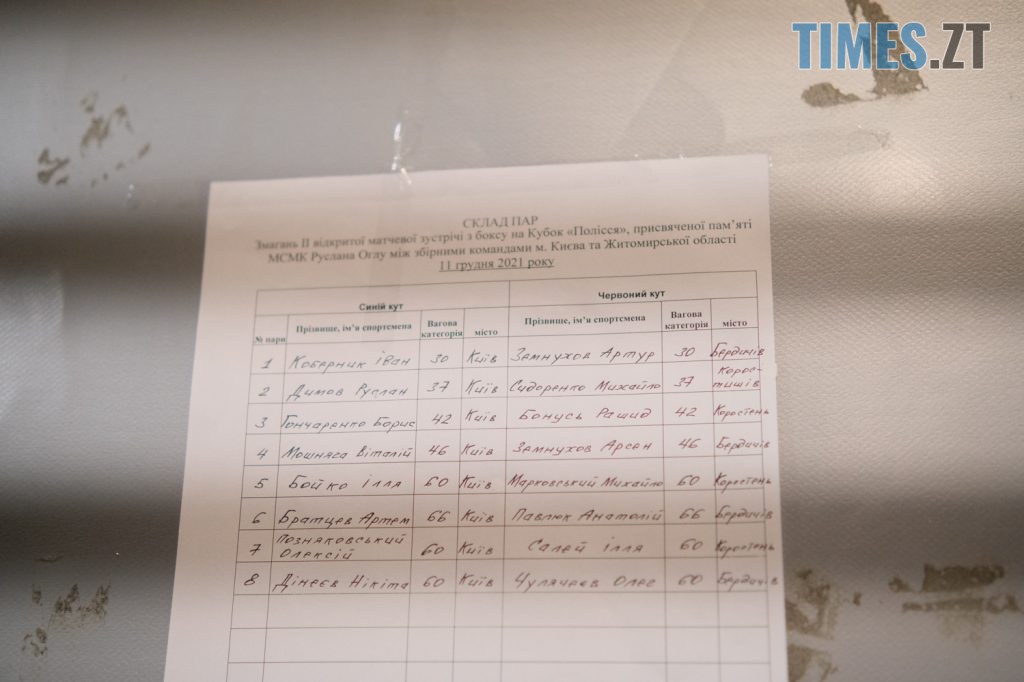 TIMES.ZT
СКЛАД ПАР
Змагань II відкритої матчевої зустрічі з боксу на Кубок «Полісся», присвяченої пам’яті
МСМК Руслана Оглу між збірними командами м. Києва та Житомирської області
11 грудня 2021 року
Синій кут Червоний кут
№ пари Прізвище, ім’я спортсмена Вагова категорія місто Прізвище, ім’я спортсмена Вагова категорія місто
1 Коберник Іван 30 Київ Земнухов Артур 30 Бердичів
2 Димов Руслан 37 Київ Сидоренко Михайло 37 Корос-
тишів
3 Гончаренко Борис 42 Київ Бонусь Рашид 42 Коростень
4 Мошняга Віталій 46 Київ Земнухов Арсен 46 Бердичів
5 Бойко Ілля 60 Київ Марковський Михайло 60 Коростень
6 Братцев Артем 66 Київ Павлюк Анатолій 66 Бердичів
7 Позняковський
Олексій 60 Київ Салей Ілля 60 Коростень
8 Дінеєв Нікіта 60 Київ Олес 60 Бердичів